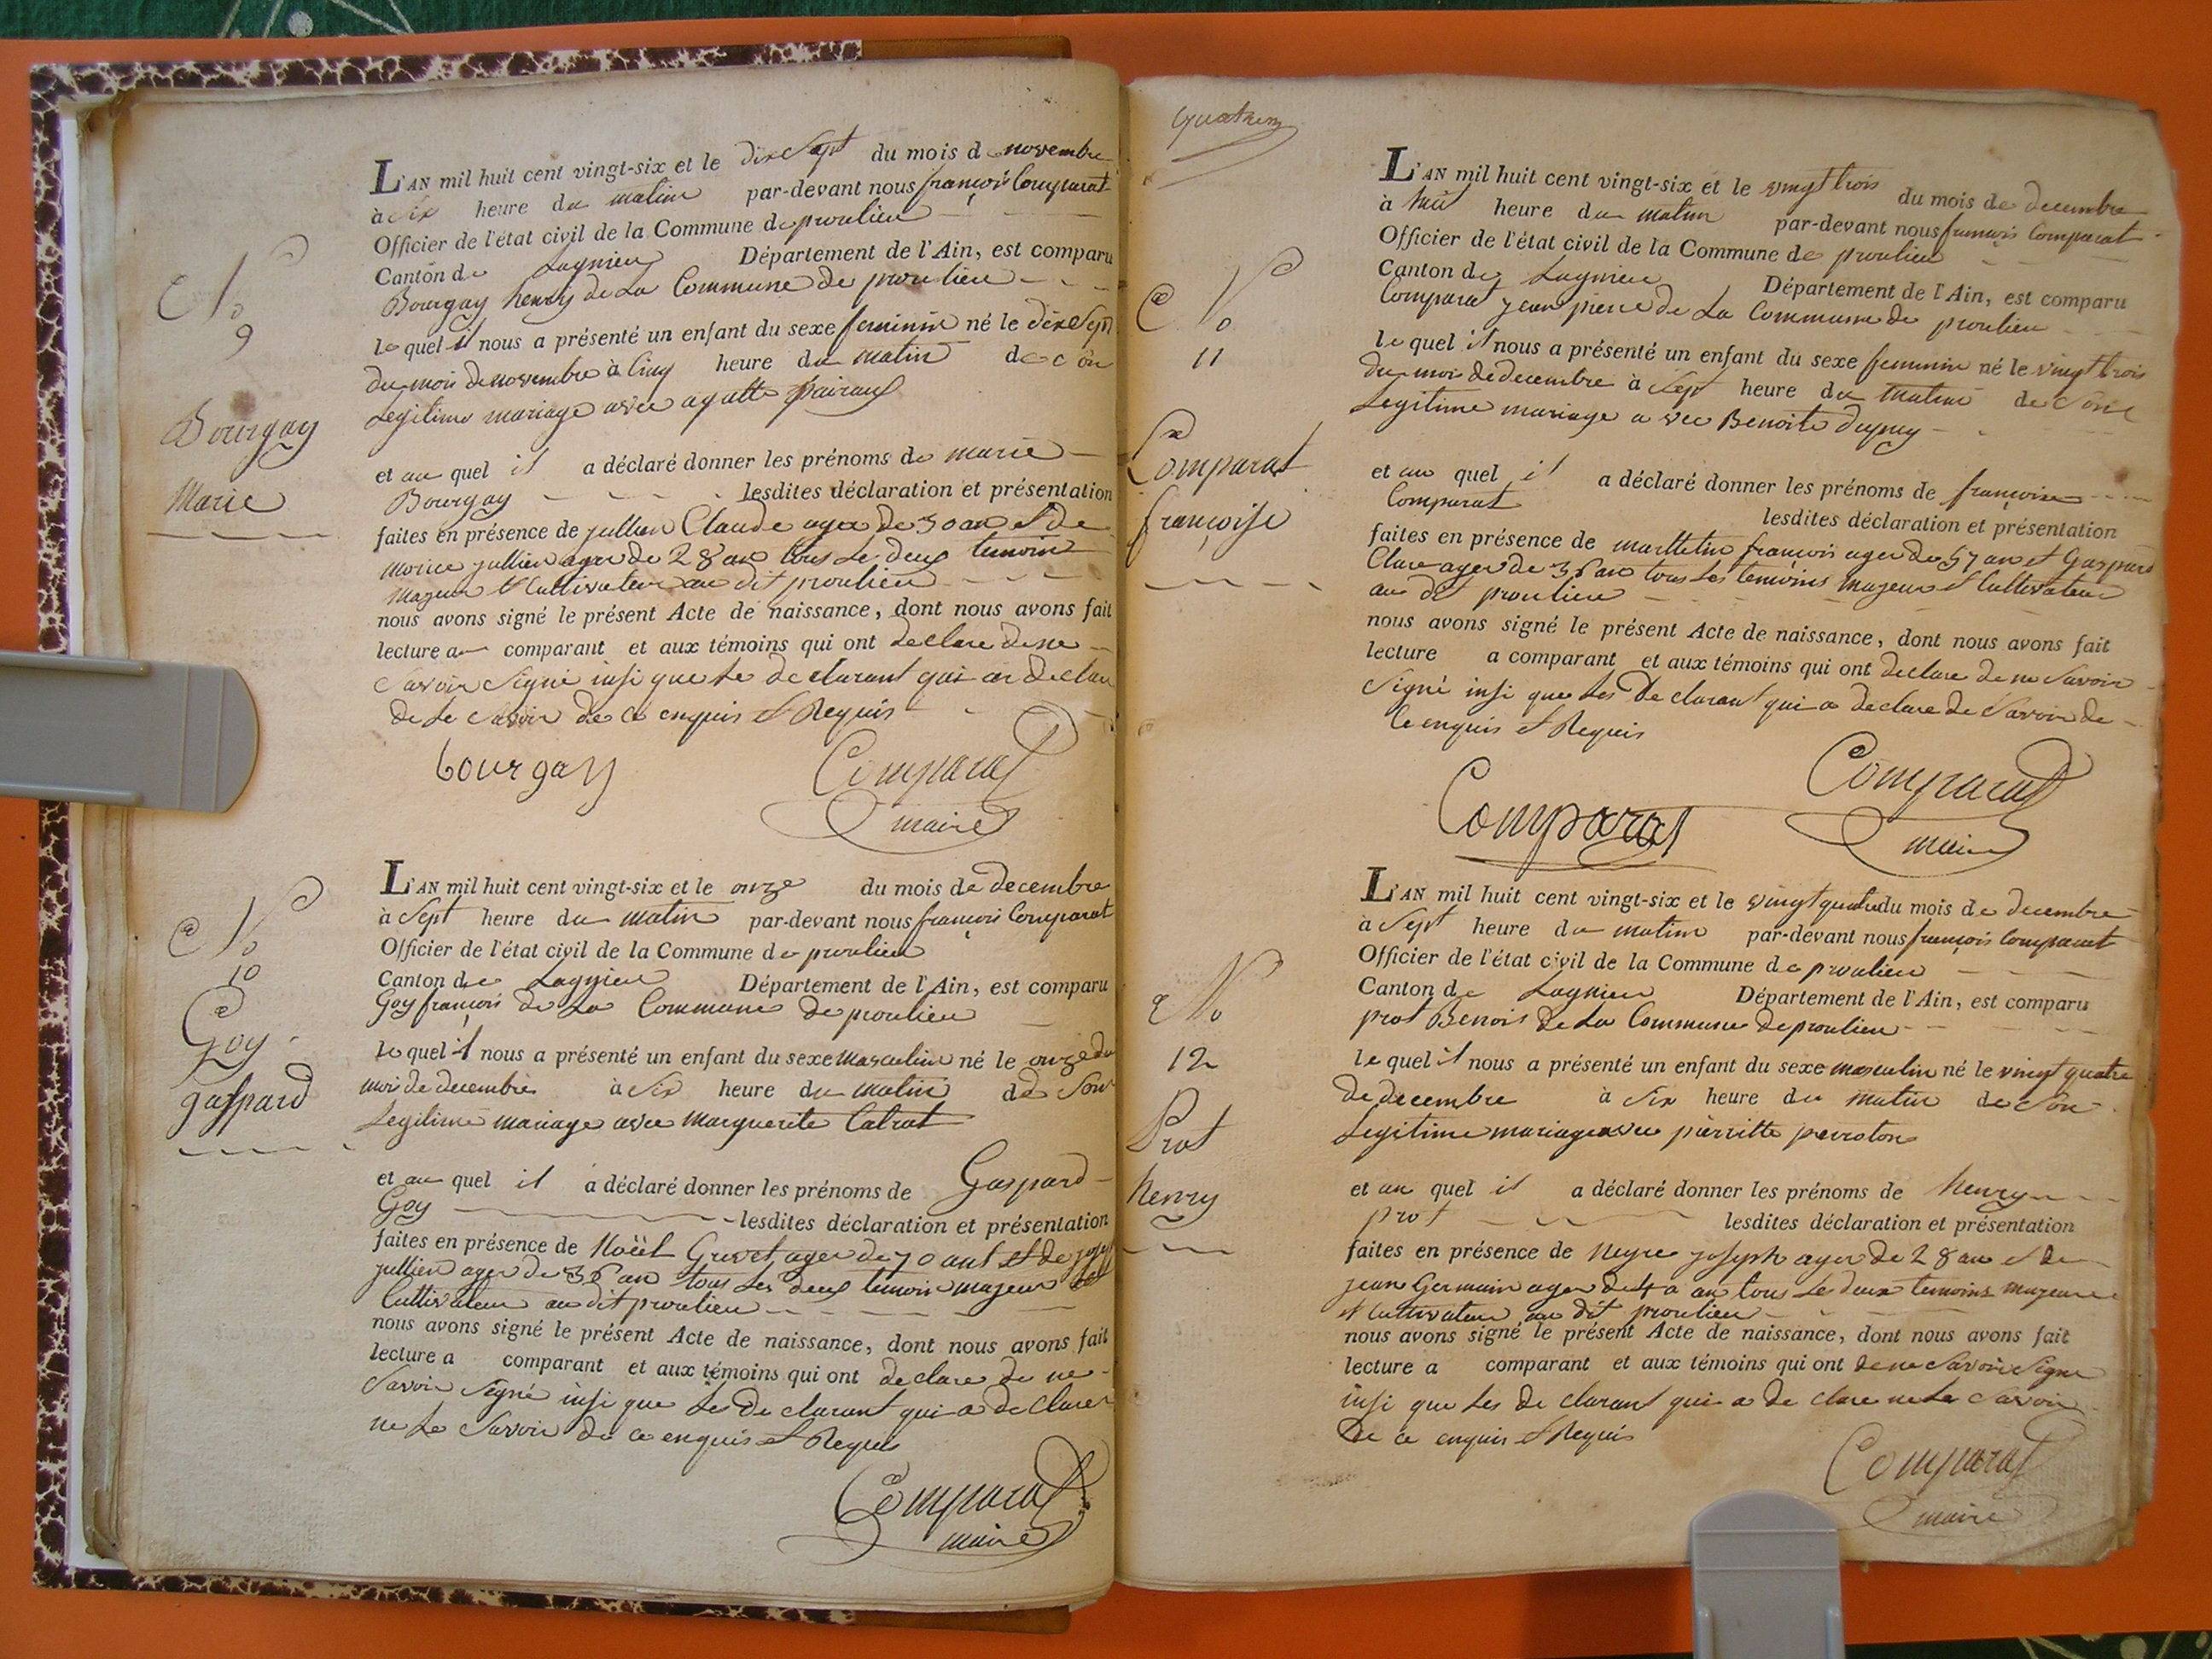 L'AN mil huit cent vingt-six et le dix Sept du mois de novembre
à six heure du matin par-devant nous françois Comparat
Officier de l'état civil de la Commune de proulieu
Canton de Lagnieu Département de l'Ain, est comparu
Bourgay henry de La Commune de proulieu
le quel il nous a présenté un enfant du sexe feminin né le dix Sept
du mois de novembre à cinq heure du matin de son
Legitime mariage avec agatte
et au quel il a déclaré donner les prénoms de marie
Bourgay lesdites déclaration et présentation
faites en présence de jullien Claude ager de 30 an et de
morice jullien ager de 28 an tous Le deux temoin
majeur et Cultivateur au dit proulieu
nous avons signé le présent Acte de naissance, dont nous avons fait
lecture au comparant et aux témoins qui ont declare de ne
savoir Signé insi que Le declarant qui a declare
de Le savoir de ce enquis et Requis
bourgay Comparat
maire
No
9
Bourgay
Marie
L'AN mil huit cent vingt-six et le onze du mois de decembre
à Sept heure du matin par-devant nous françois Comparat
Officier de l'état civil de la Commune de proulieu
Canton de Lagnieu Département de l'Ain, est comparu
Goy françois de La Commune de proulieu
le quel il nous a présenté un enfant du sexe masculin né le onze du
mois de decembre à Six heure du matin de Son
Legitime mariage avec marguerite Catrat
et au quel il a déclaré donner les prénoms de Gaspard
Goy lesdites déclaration et présentation
faites en présence de Noël Gruet ager de 70 ans et de
jullien ager de 36 an tous Les deux temoin majeur et
Cultivateur au dit proulieu
nous avons signé le présent Acte de naissance, dont nous avons fait
lecture a comparant et aux témoins qui ont declare de ne
Savoir Signé insi que Les De clarant qui a de Clarer
ne Le Savoir de ce enquis et Requis
Comparat
maire
No
10
Goy
gaspard
L'AN mil huit cent vingt-six et le vingt trois du mois de decembre
à huit heure du matin par-devant nous francois Comparat
Officier de l'état civil de la Commune de proulieu
Canton de Lagnieu Département de l'Ain, est comparu
Comparat jean pierre de La Commune de proulieu
le quel il nous a présenté un enfant du sexe feminin né le vingt trois
du mois de decembre à Sept heure du matin de Son
Legitime mariage a vec Benoite dupuy
et au quel il a déclaré donner les prénoms de françoise
Comparat lesdites déclaration et présentation
faites en présence de françois ager de 57 an et Gaspard
Clare ager de 36 an tous Les temoins majeur et Cultivateur
au dit proulieu
nous avons signé le présent Acte de naissance, dont nous avons fait
lecture a comparant et aux témoins qui ont declare de ne Savoir
Signé insi que Les De clarant qui a declare de Savoir de
Ce enquis et Requis
Comparat
Comparat maire
No
11
Comparat
françoise
L'AN mil huit cent vingt-six et le vingt quatre du mois de decembre
à Sept heure du matin par-devant nous françois Comparat
Officier de l'état civil de la Commune de proulieu
Canton de Lagnieu Département de l'Ain, est comparu
prot Benois de La Commune de proulieu
le quel il nous a présenté un enfant du sexe masculin né le vingt quatre
de decembre à Six heure du matin de Son
Legitime mariage avec pierrette perroton
et au quel il a déclaré donner les prénoms de henry
prot lesdites déclaration et présentation
faites en présence de Neyre joseph ager de 28 an et de
jean Germain ager de 40 an tous Les deux temoins majeure
et Cultivateur au dit proulieu
nous avons signé le présent Acte de naissance, dont nous avons fait
lecture a comparant et aux témoins qui ont de ne Savoir Signe
insi que Les de clarant qui a de clare ne Le Savoir
De ce enquis et Requis
Comparat
maire
No
12
Prot
henry